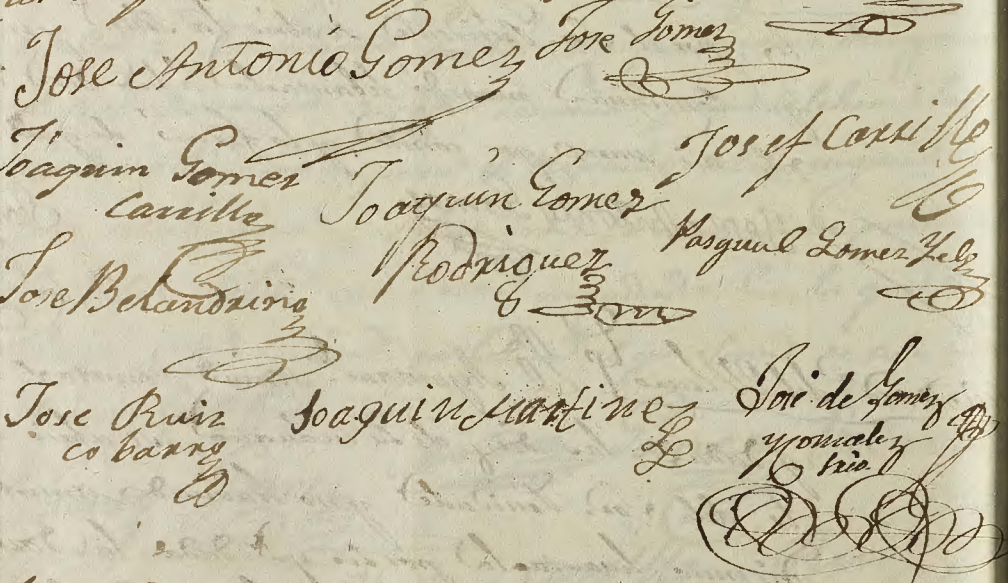 Jose Antonio Gomez Jose Gomez
Joaquin Gomez
Carrillo
Joaquin Gomez
Rodriguez
Josef Carrillo
Pasqual Gomez Yelo
Jose Belandrino
Jose Ruiz
cobarro
Joaquin Martinez
Jose de Gomez
y Gonzalez